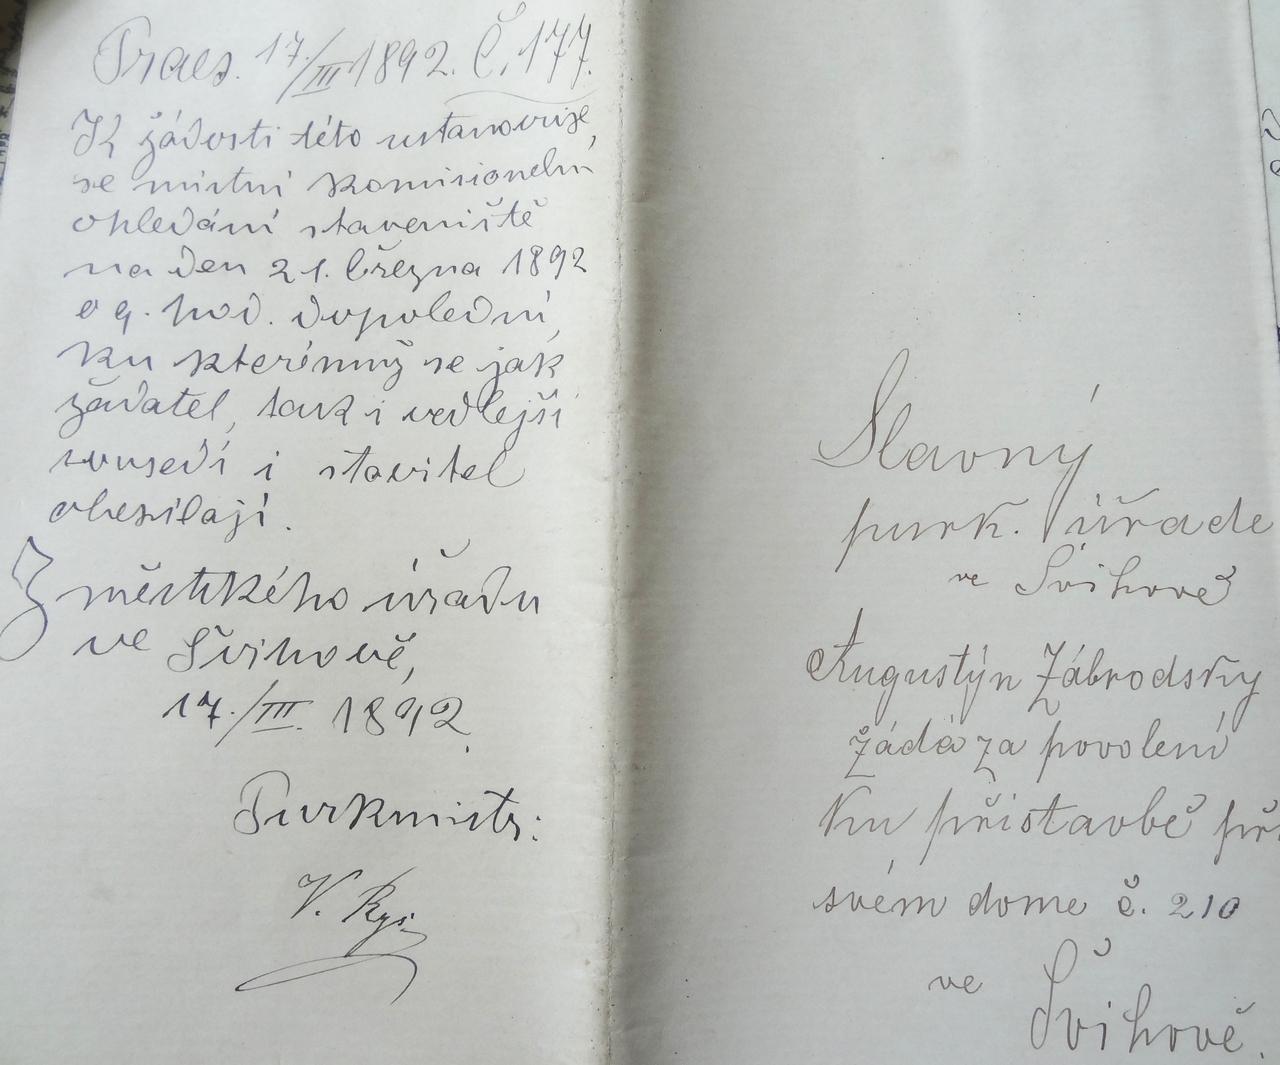 Praes. 17./III 1892. Č. 177.
K žádosti této ustanovuje
se místní komisionelní
ohledání staveniště
na den 21. března 1892
o 9. hod. dopolední,
ku kterémuž se jak
žadatel, tak i vedlejší
sousedí i stavitel
obesílají.
Z městského úřadu
ve Švihově,
17./III. 1892.
Purkmistr:
V. Rys
Slavný
purk. úřade
ve Švihově
Augustýn Zábrodský
žádá za povolení
ku přístavbě při
svém dome č. 210
ve
Švihově.